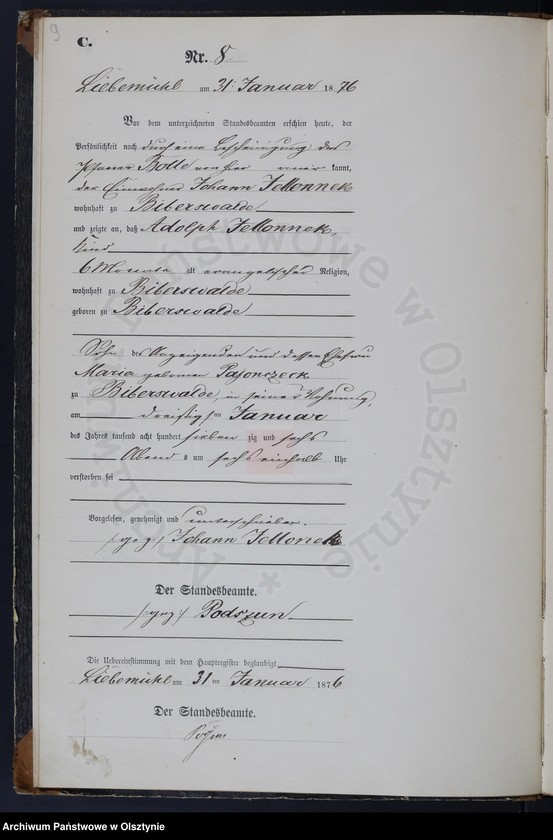 9
C.
Nr. 8
Liebemühl am 31. Januar 1876
Vor dem unterzeichneten Standesbeamten erschien heute, der
Persönlichkeit nach durch eine Bescheinigung des
Pfarrer von hier kannt,
der Einwohner Johann Jellonnek
wohnhaft zu Biberswalde
und zeigte an, daß Adolph Jellonnek,
Kind
6 Monate alt evangelischer Religion,
wohnhaft zu Biberswalde
geboren zu Biberswalde
Sohn des Anzeigenden und dessen Ehefrau
Maria geborenen Pajonczeck
zu Biberswalde, in seiner Wohnung,
am dreißigsten Januar
des Jahres tausend acht hundert siebenzig und sechs
Abends um sechs einhalb Uhr
verstorben sei
Vorgelesen, genehmigt und unterschrieben.
/:gez:/ Johann Jellonek
Der Standesbeamte.
/:gez:/ Podszun
Die Uebereinstimmung mit dem Hauptregister beglaubigt
Liebemühl am 31ten Januar 1876
Der Standesbeamte.
Archiwum Państwowe w Olsztynie
Archiwum Państwowe w Olsztynie *